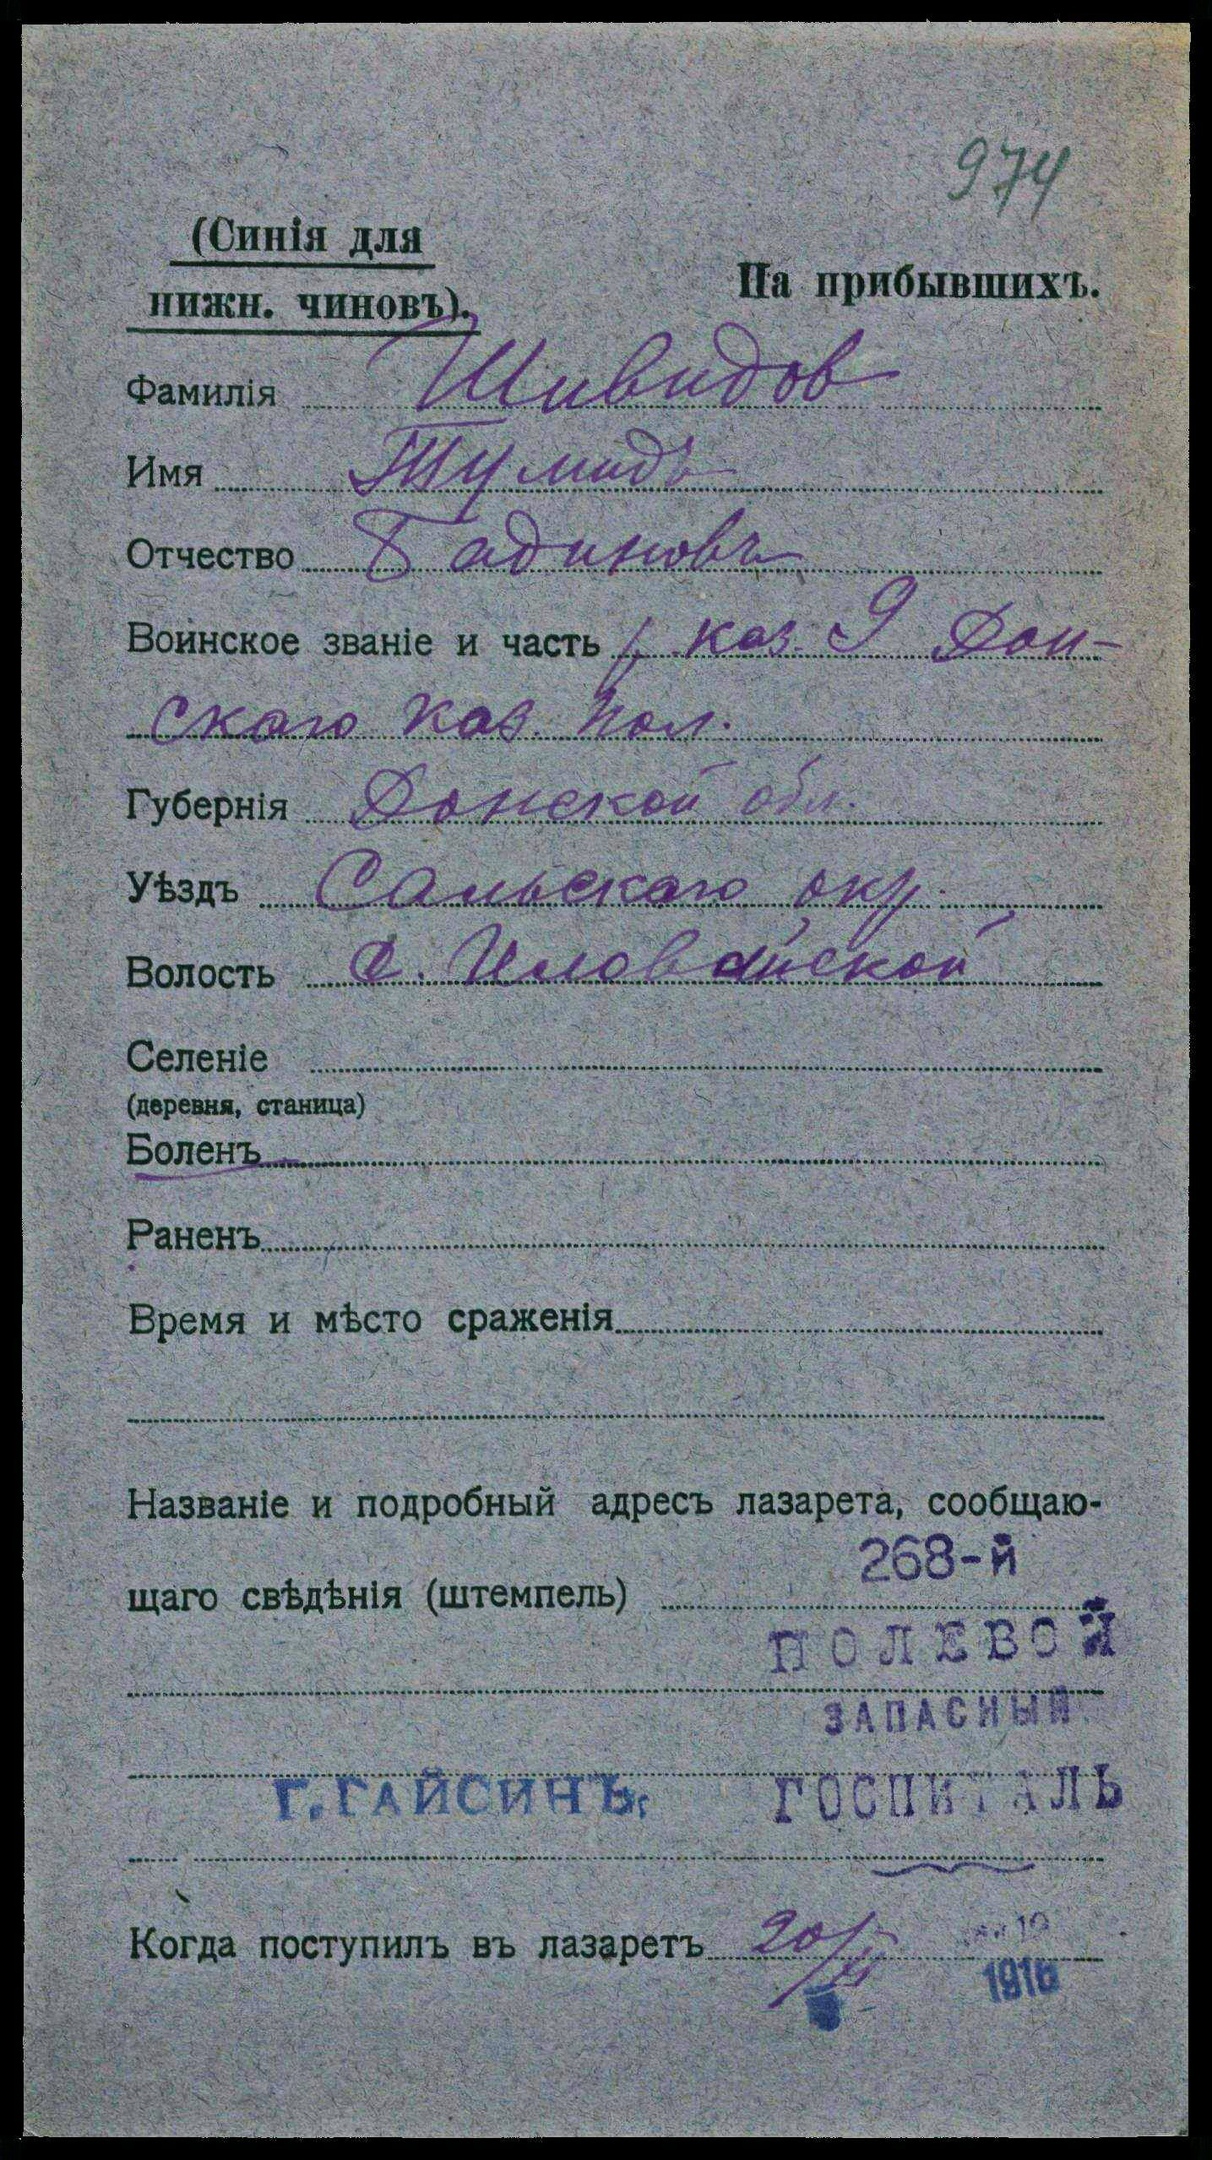 974
(Синія для
нижн. чиновъ).
На прибывшихъ.
Фамилія Шивидов
Имя Тумидъ
Отчество Бадиновъ
Воинское званіе и часть каз. 9 Дон-
скаго каз. пол.
Губернія Донской обл.
Уѣздъ Сальскаго окр.
Волость с. Иловайской
Селеніе
(деревня, станица)
Боленъ
Раненъ
Время и мѣсто сраженія
Названіе и подробный адресъ лазарета, сообщаю-
268-й
щаго свѣдѣнія (штемпель)
ПОЛЕВОЙ
ЗАПАСНЫЙ
Г. ГАЙСИНЪ.
ГОСПИТАЛЬ
Когда поступилъ въ лазаретъ 20/
1916